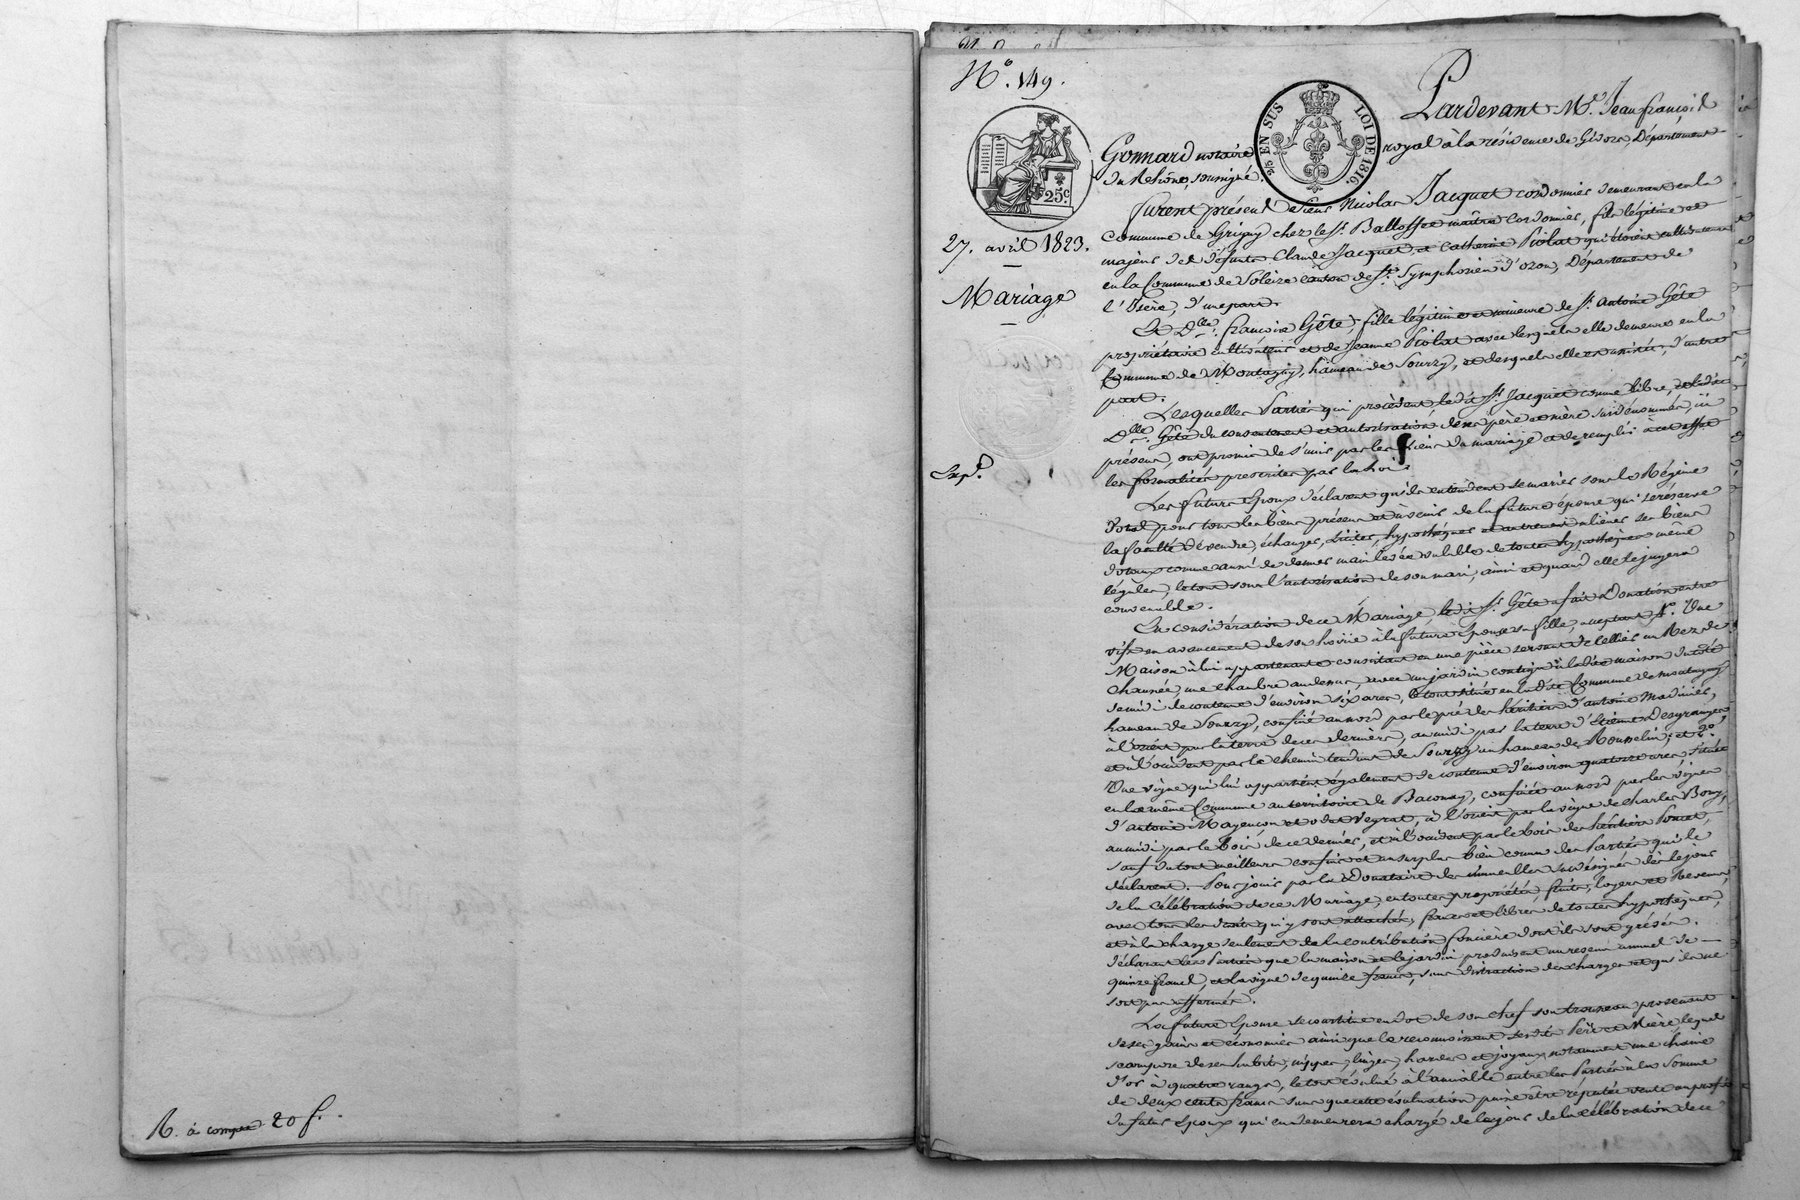 R. à compte 20 f.
N.º 149.
25 EN SUS LOI DE 1816.
25.c
27. avril 1823.
Mariage
Exp.
Pardevant M.e Jean françois
Gonnard notaire royal à la résidence de Givors, Département
du Rhône, soussigné.
furent présens le sieur Nicolas Jacquet cordonnier demeurant en la
Commune de Grigny chez le s.r Ballosse maître Cordonnier, fils légitime et
majeur des défunts Claude Jacquet, et Catherine Piolat qui étoient cultivateurs
en la Commune de Solaize canton de s.t Symphorien d'ozon, Département de
l'Isère, d'une part.
Et D.lle françoise Gête, fille légitime et mineure de s.r antoine Gête
propriétaire cultivateur et de Jeanne Piolat avec lesquels elle demeure en la
Commune de Montagny, hameau de Sourzy, et desquels elle est assistée, d'autre
part.
Lesquelles Parties qui procèdent led.it s.r Jacquet comme libre, et lad.ite
D.lle Gête du consentement et autorisation de ses père et mère susdénommés, ici
présens, ont promis de s'unir par les liens du mariage et de remplir à cet effet
les formalités prescrites par la Loi.
Les futurs Epoux déclarent qu'ils entendent se marier sous le Régime
Dotal pour tous les biens présens et à venir de la future épouse qui se réserve
la faculté de vendre, échanger, liciter, hypothéquer et autrement aliéner ses biens
dotaux comme aussi de donner main levée valable de toutes hypothèques même
légales, le tout sous l'autorisation de son mari, ainsi et quand elle le jugera
convenable.
En considération de ce Mariage, led.it s.r Gête a fait Donation entre
vifs en avancement de son hoirie à la future Epouse sa fille, acceptant 1.º Une
Maison à lui appartenante consistant en une pièce servant de cellier au Rez de
chaussée, une chambre au dessus, avec un jardin contigu à ladite maison du côté
de midi de contenue d'environ six ares, le tout situé en ladite Commune de montagny
hameau de Sourzy, confiné au nord par le pré des héritiers d'antoine Madinier,
à l'orient par la terre de ce dernier, au midi par la terre d'Etienne Desgranges
et à l'occident par le chemin tendant de Sourzy au hameau de Rousselin; et 2.º
Une vigne qui lui appartient également de contenue d'environ quatorze ares située
en la même Commune au territoire de Baconay, confinée au nord par les vignes
d'antoine Mayençon et odet Veyrat, à l'orient par la vigne de charles Bony,
au midi par le bois de ce dernier, et à l'occident par le bois des héritiers Poncet,
sauf du tout meilleurs confins et au surplus bien connu des Parties qui le
déclarent. Pour jouir par la Donataire des immeubles susdésignés dès le jour
de la célébration de ce Mariage, en toute propriété, fruits, loyers et Revenus,
avec tous les droits qui y sont attachés, francs et libres de toutes hypothèques,
et à la charge seulement de la contribution foncière dont ils sont grésés.
déclarant les Parties que la maison et le jardin produisent un revenu annuel de
quinze francs, et la vigne de quinze francs, sans distraction des charges et qui de ne
soit pas affermés.
La future Epouse se constitue en dot de son chef son trousseau provenant
de ses gains et économies ainsi que le reconnoissent sesdits Père et Mère lequel
se compose de ses habits, nippes, linges, hardes et joyaux notamment une chaine
d'or à quatre rangs, le tout évalué à l'amiable entre les Parties à la somme
de deux cents francs sans que cette évaluation puisse être réputée vente au profit
du futur Epoux qui en demeurera chargé dès le jour de la célébration de ce